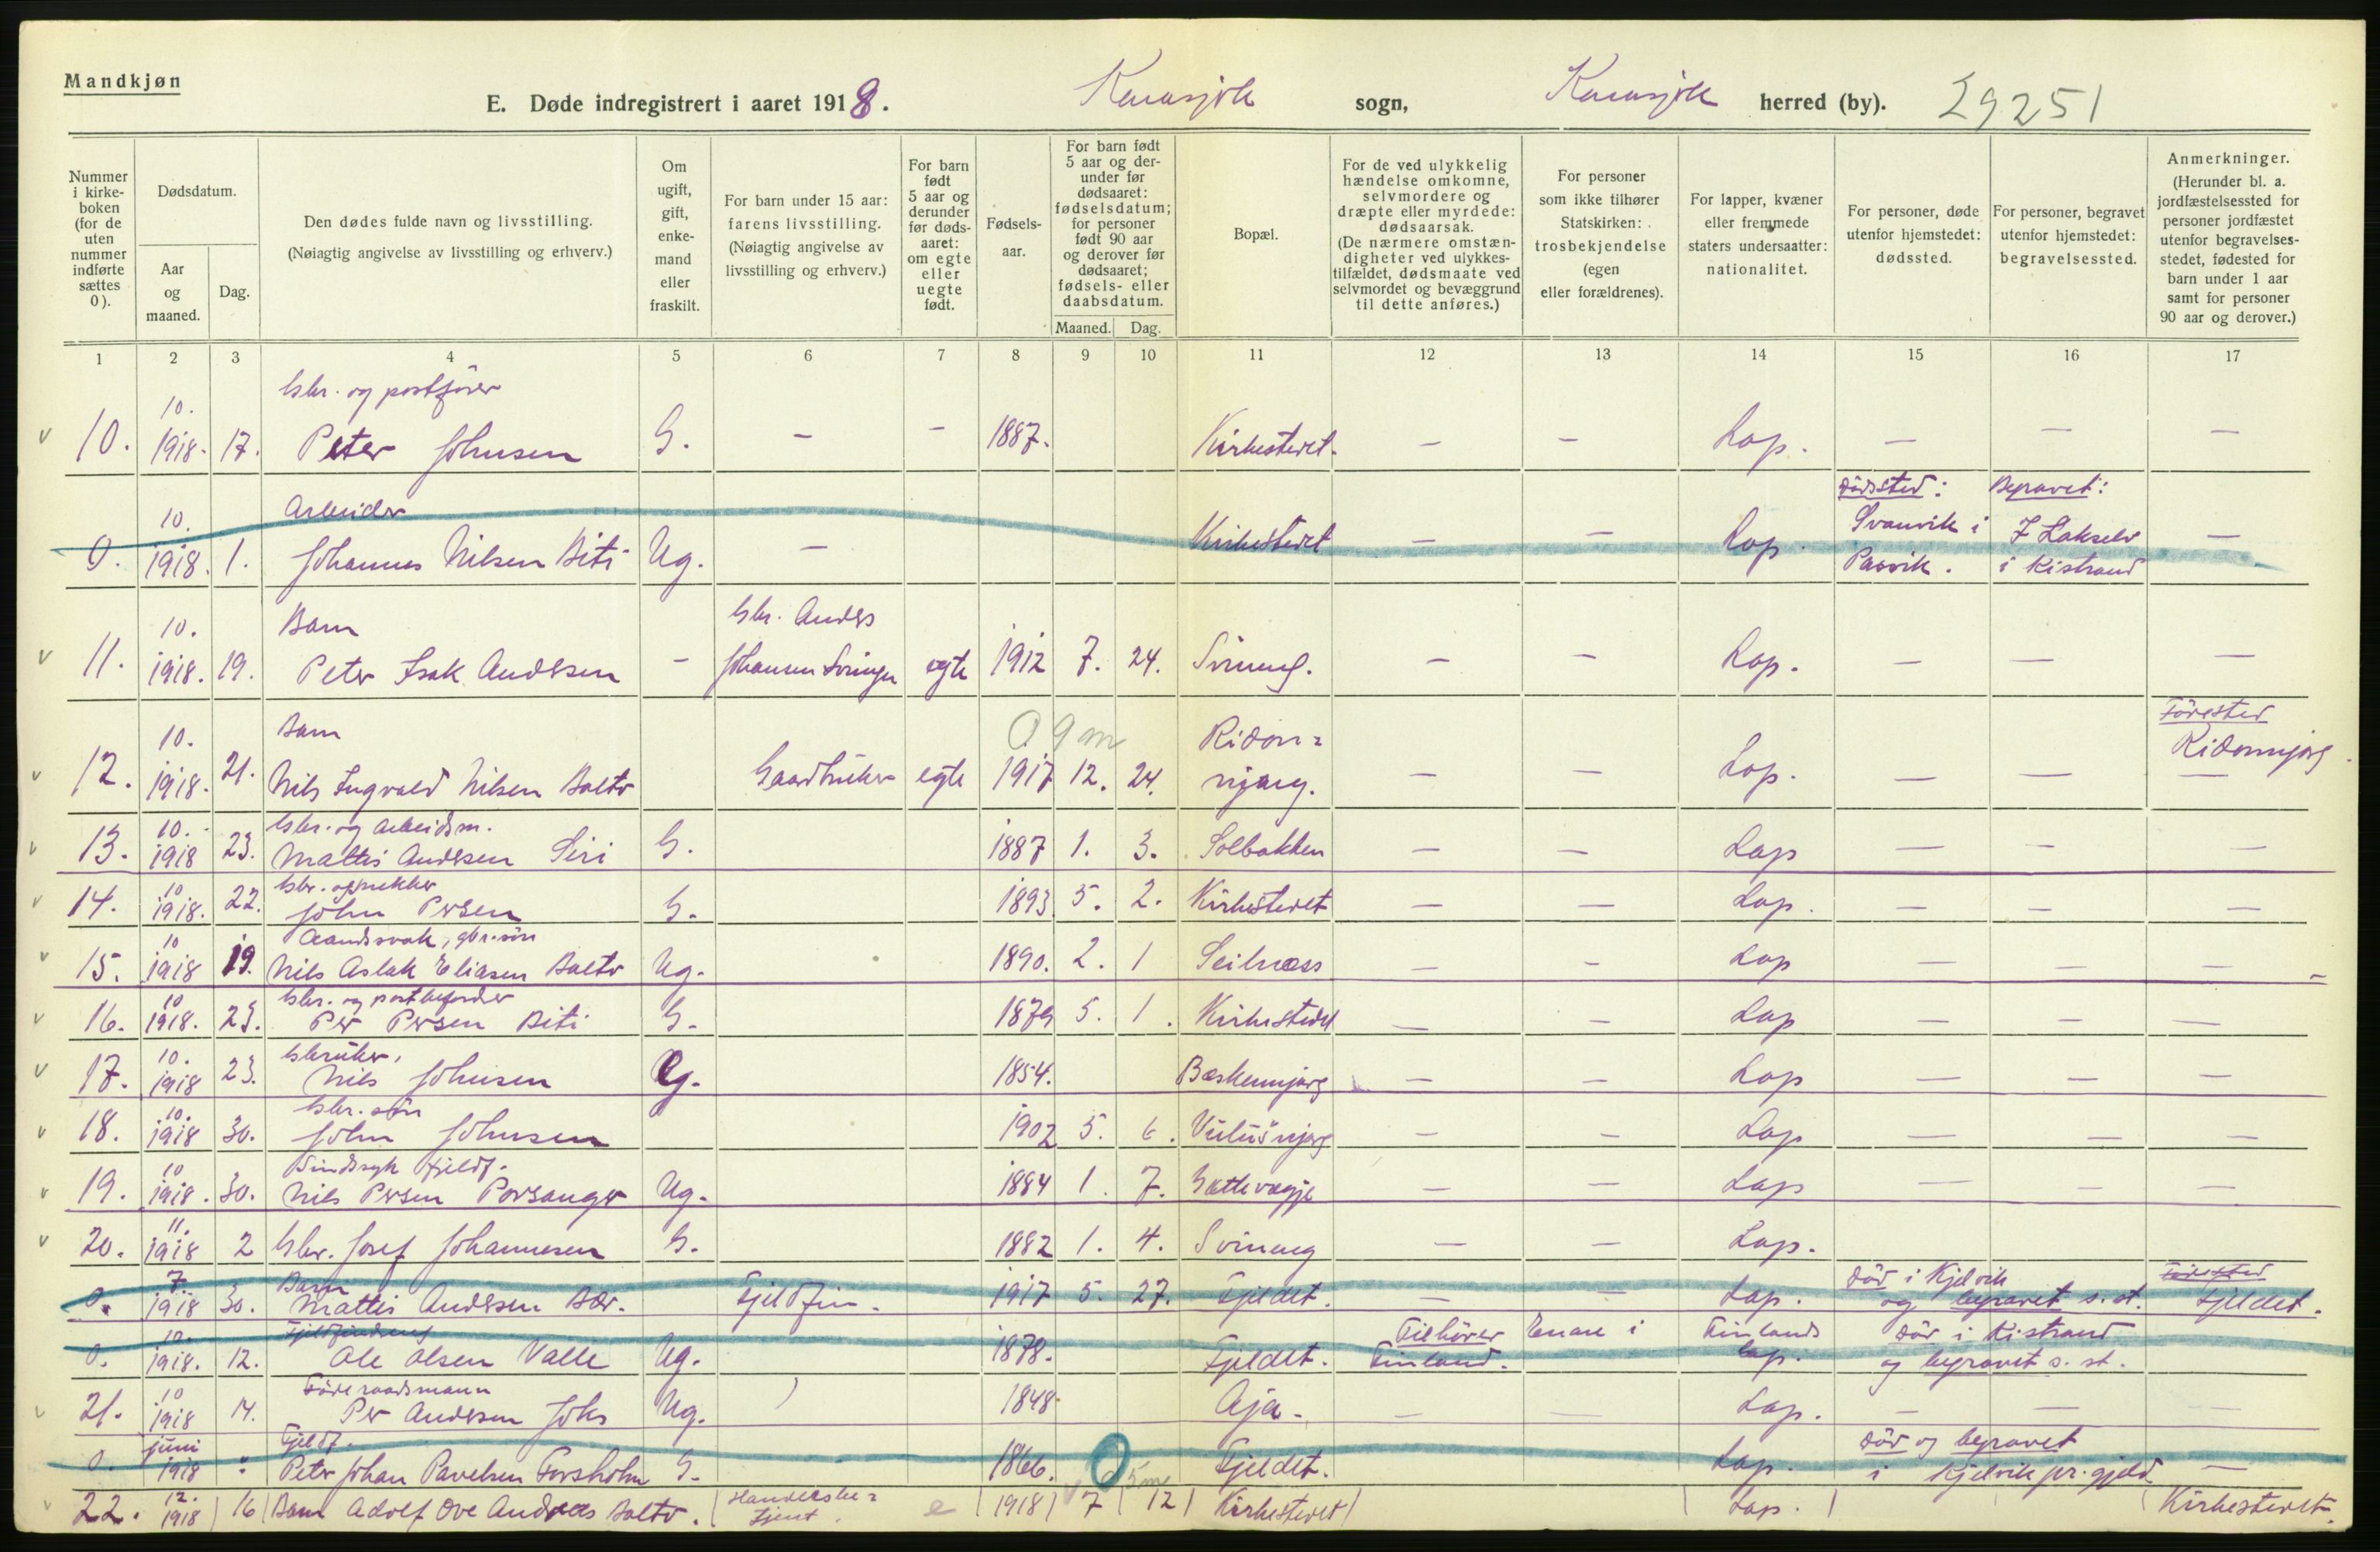 Mandkjøn
E. Døde indregistrert i aaret 1918. Karasjok sogn, Karasjok herred (by). 29251
Nummer i kirke-boken (for de uten nummer indførte sættes 0).
Dødsdatum.
Aar og maaned.
Dag.
Den dødes fulde navn og livsstilling.
(Nøiagtig angivelse av livsstilling og erhverv.)
Om ugift, gift, enke-mand eller fraskilt.
For barn under 15 aar: farens livsstilling. (Nøiagtig angivelse av livsstilling og erhverv.)
For barn født 5 aar og derunder før døds-aaret: om egte eller uegte født.
Fødsels-aar.
For barn født 5 aar og der-under før dødsaaret: fødselsdatum; for personer født 90 aar og derover før dødsaaret; fødsels- eller daabsdatum.
Maaned. Dag.
Bopæl.
For de ved ulykkelig hændelse omkomne, selvmordere og dræpte eller myrdede: dødsaarsak. (De nærmere omstæn-digheter ved ulykkes-tilfældet, dødsmaate ved selvmordet og bevæggrund til dette anføres.)
For personer som ikke tilhører Statskirken: trosbekjendelse (egen eller forældrenes).
For lapper, kvæner eller fremmede staters undersaatter: nationalitet.
For personer, døde utenfor hjemstedet: dødssted.
For personer, begravet utenfor hjemstedet: begravelsessted.
Anmerkninger. (Herunder bl. a. jordfæstelsessted for personer jordfæstet utenfor begravelses-stedet, fødested for barn under 1 aar samt for personer 90 aar og derover.)
1 2 3 4 5 6 7 8 9 10 11 12 13 14 15 16 17
Gbr. og postfører
10. 10. 1918. 17. Peter Johnsen G. – – 1887. Kirkestedet. – – Lap. – – –
Arbeider Dødssted: Begravet:
0. 10. 1918. 1. Johannes Nilsen Biti Ug. – Kirkestedet – – Lap. Svanvik i Pasvik. I Lakselv i Kistrand –
Barn Gbr. Anders
11. 10. 1918. 19. Peter Isak Andersen – Johansen egte 1912 7. 24. Svineng. – – Lap. – – –
Barn 0 9 m Ridon= Fødested
12. 10. 1918. 21. Nils Ingvald Nilsen Balto Gaardbruker egte 1917 12. 24. njarg. – – Lap. – – Ridonnjarg.
Gbr. og arbeidsm.
13. 10. 1918 23. Mattis Andersen Siri G. 1887 1. 3. Solbakken – – Lap – – –
Gbr.
14. 10 1918. 22. John Persen G. 1893 5. 2. Kirkestedet – – Lap. – – –
Aandssvak, gbr. søn
15. 10 1918 19. Nils Aslak Eliasen Balto Ug. 1890. 2. 1 Seilnæss – – Lap – – –
Gbr. og postbefordrer
16. 10 1918. 23. Per Persen Biti G. 1879 5. 1. Kirkestedet – – Lap – – –
Gbruker,
17. 10. 1918 23. Nils Johnsen 1854. Bæskennjarg – – Lap – – –
Gbr. søn
18. 10. 1918 30. John Johnsen 1902 5. 6. – – Lap – – –
Sindssyk fjeldf.
19. 10 1918. 30. Nils Persen Porsanger Ug. 1884 1. 7. – – Lap – – –
20. 11. 1918 2 Gbr. Josef Johannesen G. 1882 1. 4. Svineng – – Lap.
Barn Død i Kjelvik Fødested
0. 7. 1918 30. Mattis Andersen Bær. Fjeldfin. 1917 5. 27. Fjeldet. – – Lap. og begravet s. st. Fjeldet.
Tilhører Enare i Finlands Død i Kistrand
0. 10. 1918. 12. Ole Olsen Valle Ug. 1878. Fjeldet. Finland. Lap. og begravet s. st.
Føderaadsmann
21. 10 1918 14. Per Andersen Johs Ug. 1848. Aja. – – Lap. – – –
Fjeldf. Død og begravet
0. juni 1918 " Peter Johan Pavelsen Forsholm G. 1866. Fjeldet. Lap. i Kjelvik pr.gjeld –
0 5 m
22. 12. 1918 16 Barn Adolf Ove Andreas Balto. Handelsbe=tjent. e 1918 7 12 Kirkestedet Lap. Kirkestedet.